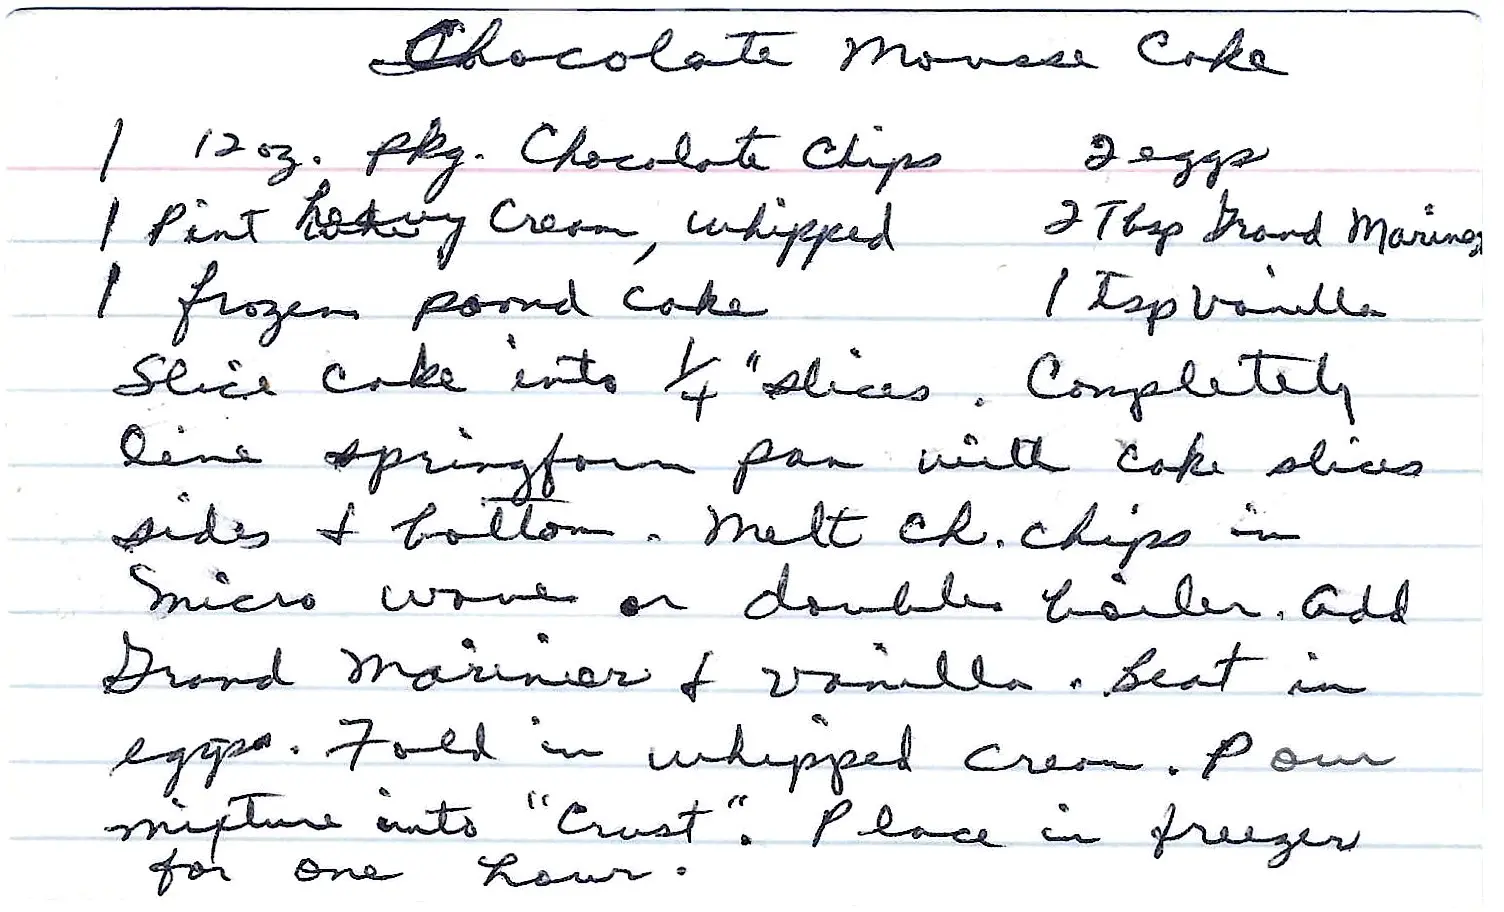 Chocolate Mousse Cake
1 12 oz. pkg. Chocolate Chips 2 eggs
1 Pint heavy Cream, whipped 2 Tbsp Grand Marinier
1 frozen pound cake 1 Tsp Vanilla
Slice cake into 1/4" slices. Completely
line springform pan with cake slices
sides & bottom. Melt Ch. chips in
micro wave or double boiler. Add
Grand Marinier & vanilla. Beat in
eggs. Fold in whipped cream. Pour
mixture into "Crust". Place in freezer
for one hour.